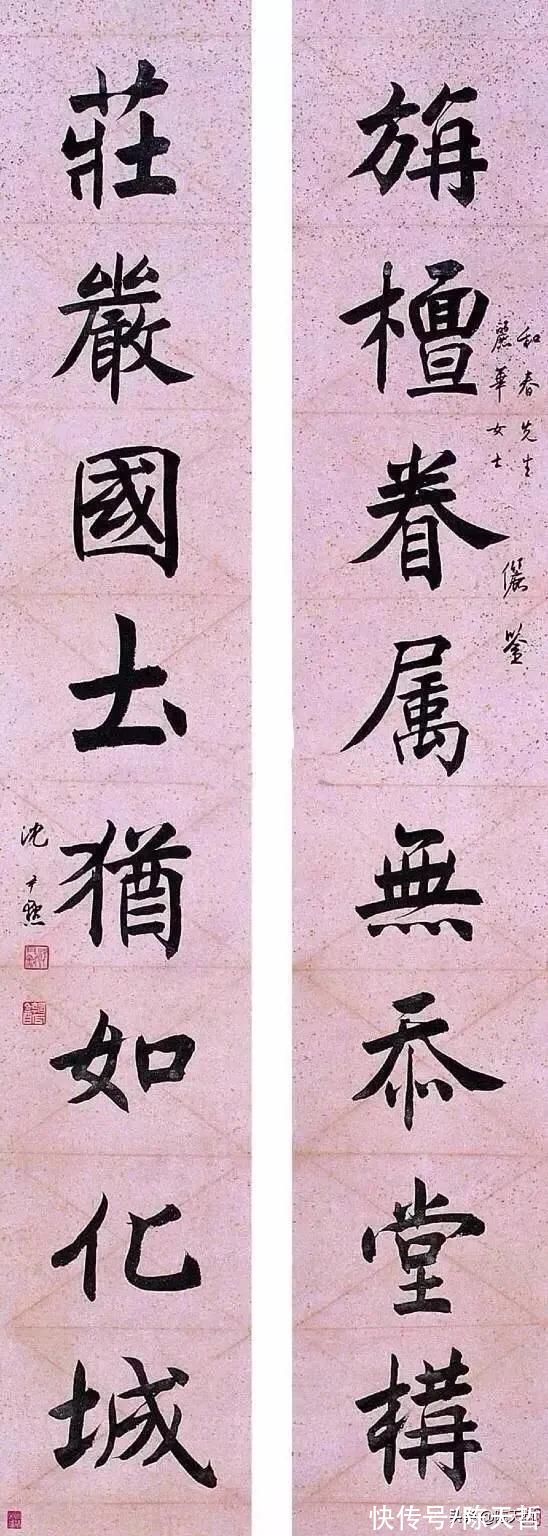 旃檀眷属無忝堂構
和春先生
麗華女士
儷鑒
莊嚴國土猶如化城
沈尹默
快传号/陈天哲